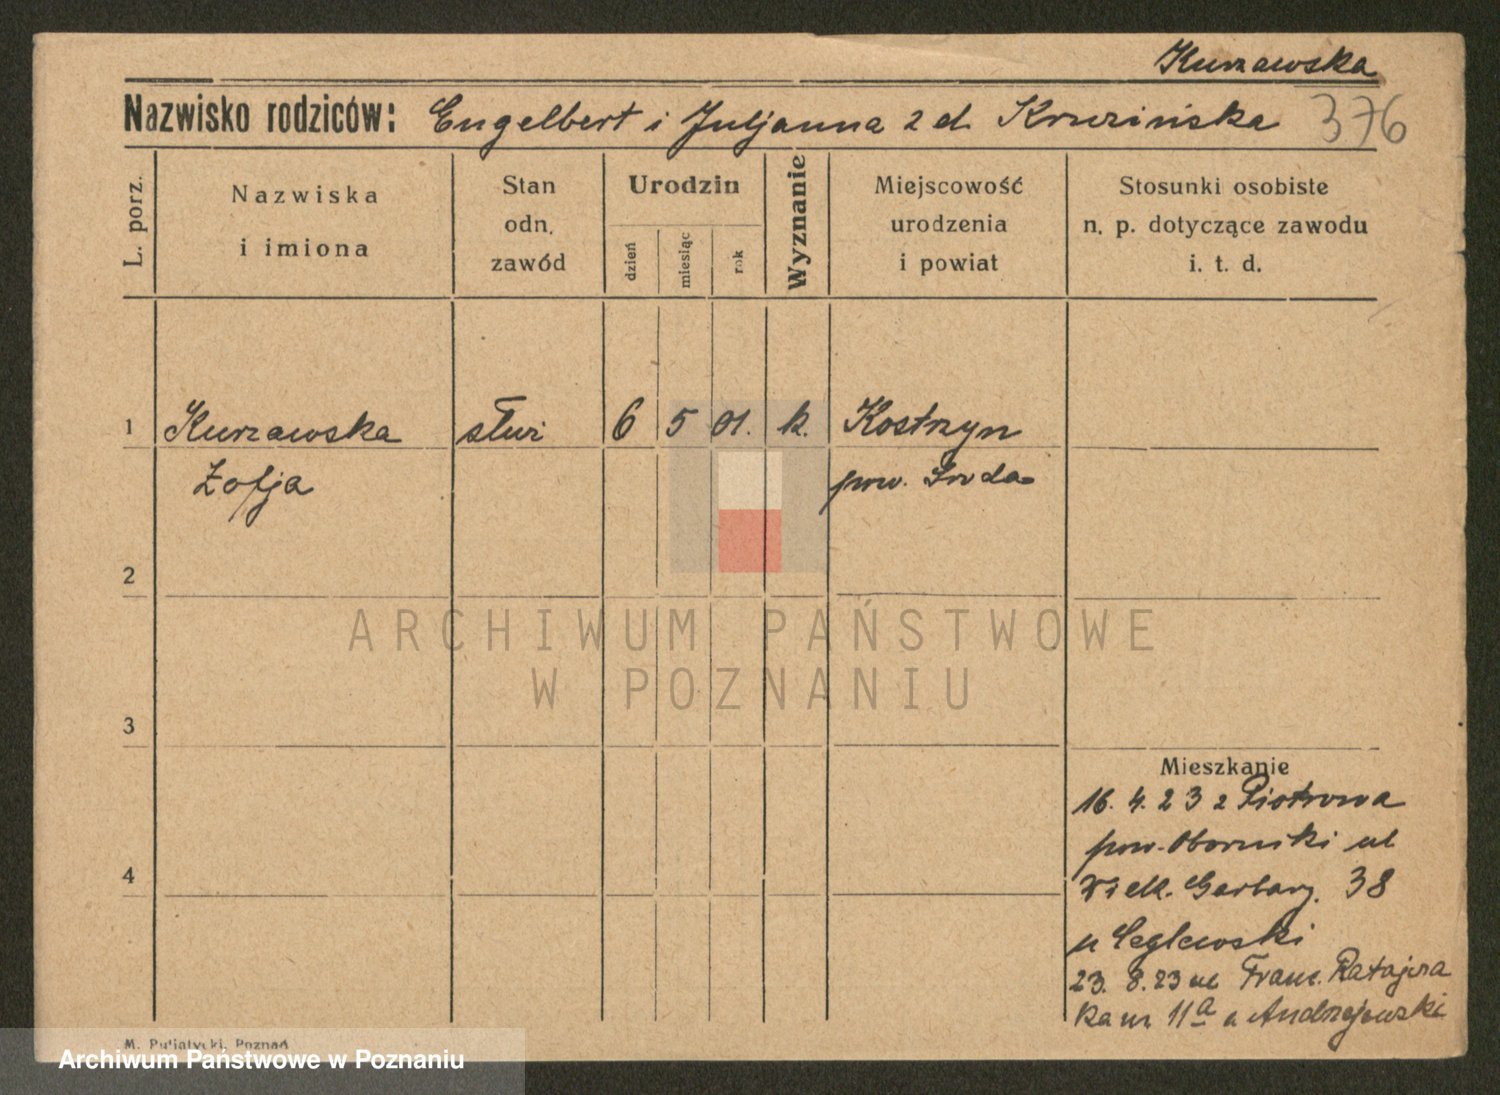 Kurzawska
Nazwisko rodziców: Engelbert i Juljanna z d. Kruzińska 376
L. porz.
Nazwiska
i imiona
Stan
odn.
zawód
Urodzin
dzień
miesiąc
rok
Wyznanie
Miejscowość
urodzenia
i powiat
Stosunki osobiste
n. p. dotyczące zawodu
i. t. d.
1 Kurzawska służ 6 5 01. k. Kostrzyn
Zofja pow. Środa
2
ARCHIWUM PAŃSTWOWE
W POZNANIU
3
Mieszkanie
16. 4. 23 z Piotrowa
pow. Oborniki ul
4
Wielk. Garbary. 38
u Ceglewski
23. 8. 23 ul Franc. Ratajcza
ka nr 11a u Andrzejewski
M. Puljatycki, Poznań
Archiwum Państwowe w Poznaniu